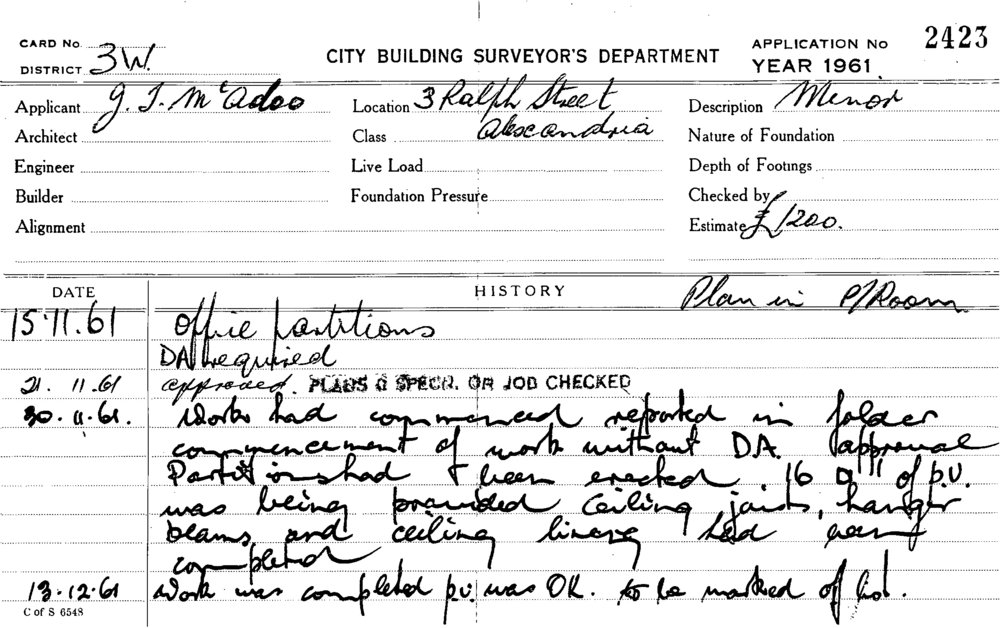 CARD No. CITY BUILDING SURVEYOR'S DEPARTMENT APPLICATION No 2423
DISTRICT 3W. YEAR 1961
Applicant J. T. McAdoo Location 3 Ralph Street Description Minor
Architect Class Alexandria Nature of Foundation
Engineer Live Load Depth of Footings
Builder Foundation Pressure Checked by
Alignment Estimate £1200.
DATE HISTORY Plan in P/Room
15.11.61 Office partitions
DA required
21.11.61 approved. PLANS & SPECN. OR JOB CHECKED
30.11.61. Work had commenced reported in folder
commencement of work without D.A. approval
Partitions had been erected. 16 □''' of p.v.
was being provided Ceiling joists, hanger
beams, and ceiling lining had been
completed
13.12.61 Work was completed p.v. was OK. to be marked of list.
C of S 6548